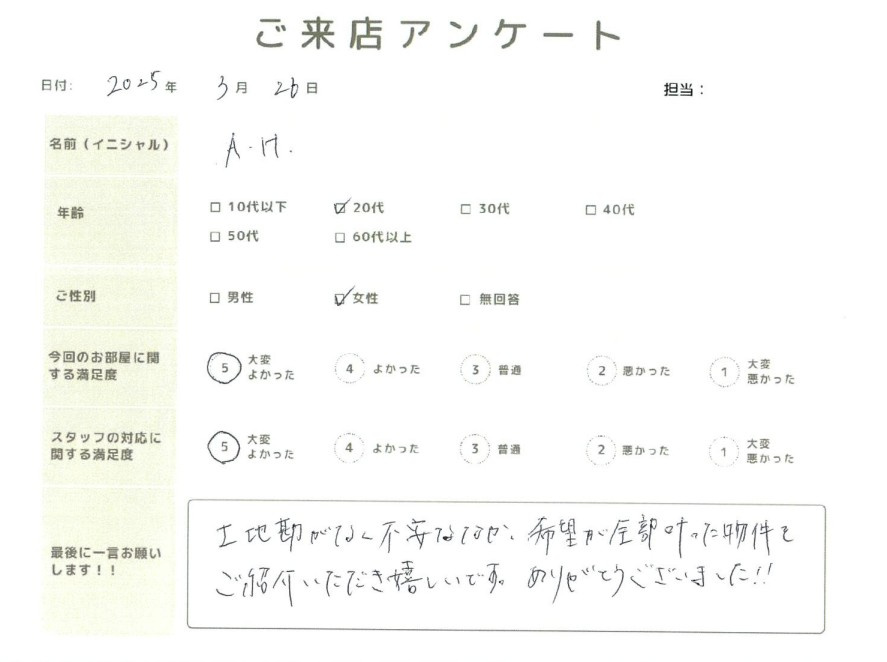 ご来店アンケート
日付: 2025年 3月 26日 担当：
名前（イニシャル） A.H.
年齢 □ 10代以下 ☑ 20代 □ 30代 □ 40代
□ 50代 □ 60代以上
ご性別 □ 男性 ☑ 女性 □ 無回答
今回のお部屋に関する満足度 5 大変よかった 4 よかった 3 普通 2 悪かった 1 大変悪かった
スタッフの対応に関する満足度 5 大変よかった 4 よかった 3 普通 2 悪かった 1 大変悪かった
最後に一言お願いします！！
土地勘がなく不安ななか、希望が全部叶った物件を
ご紹介いただき嬉しいです。ありがとうございました!!